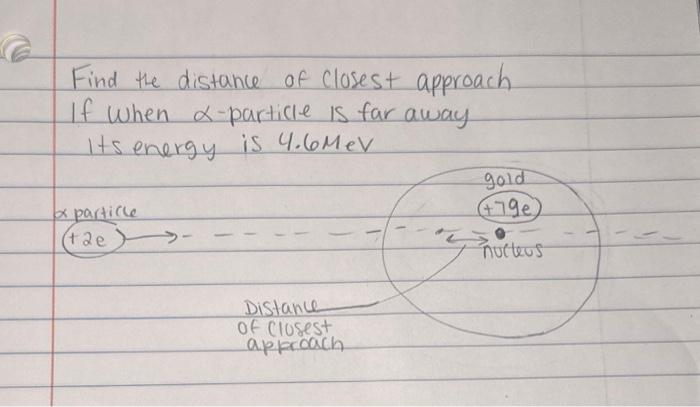 Find the distance of closest approach
If when α-particle is far away
its energy is 4.6MeV
gold
+79e
α particle
+2e
nucleus
Distance
of closest
approach